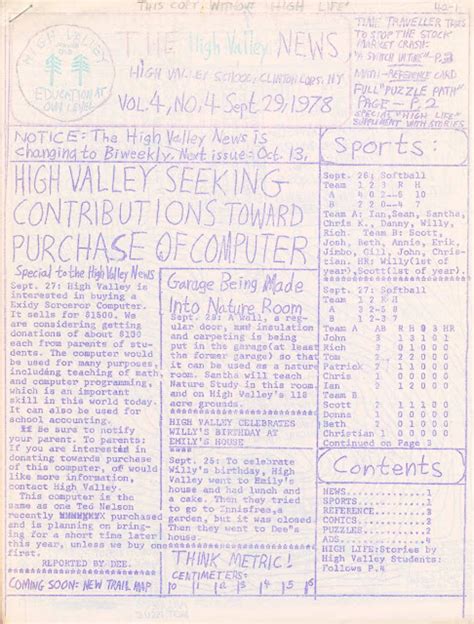 THIS COPY WITHOUT "HIGH LIFE"
HIGH VALLEY
EDUCATION AT OUR LEVEL
THE High Valley NEWS
HIGH VALLEY SCHOOL, CLINTON CORS. NY
VOL. 4, NO. 4 Sept. 29, 1978
"TIME TRAVELLER TRIES
TO STOP THE STOCK
MARKET CRASH:
P.3
MINI-REFERENCE CARD
FULL "PUZZLE PATH"
PAGE - P. 2
SPECIAL "HIGH LIFE"
SUPPLEMENT WITH STORIES
NOTICE: The High Valley News is
changing to Biweekly. Next issue: Oct. 13,
HIGH VALLEY SEEKING
CONTRIBUTIONS TOWARD
PURCHASE OF COMPUTER
Special to the High Valley News
Sept. 27: High Valley is
interested in buying a
Exidy Sorceror Computer.
It sells for $1500. We
are considering getting
donations of about $100
each from parents of stu-
dents. The computer would
be used for many purposes,
including teaching of math
and computer programming,
which is an important
skill in this world today.
It can also be used for
school accounting.
If Be sure to notify
your parent. To parents:
If you are interested in
donating towards purchase
of this computer, of would
like more information,
contact High Valley.
This computer is the
same as one Ted Nelson
recently purchased
and is planning on bring-
ing for a short time later
this year, unless we buy one
first.
REPORTED BY DEE.
COMING SOON: NEW TRAIL MAP
Garage Being Made
Into Nature Room
Sept. 28: A wall, a reg-
ular door, insulation
and carpeting is being
put in the garage(at least
the former garage) so that
it can be used as a nature
room. Santha will teach
Nature Study in this room
and on High Valley's 118
acre grounds.
HIGH VALLEY CELEBRATES
WILLY'S BIRTHDAY AT
EMILY'S HOUSE
Sept. 25: To celebrate
Willy's birthday, High
Valley went to Emily's
house and had lunch and
a cake. Then they tried
to go to Innisfree, a
garden, but it was closed
Then they went to Dee's
house.
THINK METRIC!
CENTIMETERS:
0 1 2 3 4 5 6
Sports:
Sept. 26: Softball
Team 1 2 3 R H
A 4 0 2--6 10
B 2 2 0--4 7
Team A: Ian, Sean, Santha,
Chris K., Danny, Willy,
Rich. Team B: Scott,
Josh, Beth, Annie, Erik,
Jimbo, Gill, John, Chris-
tian. HR: Willy(1st of
year), Scott(1st of year).
Sept. 27: Softball
Team 1 2 R H
A 3 2-5
B 1 2-3 7
Team A AB R H O3 HR
John 3 1 3 1 0 1
Rich
Tom
Patrick
Chris
Ian
Team B
Scott
Donna
Beth
Christian
Continued on Page 3
Contents
NEWS 1
SPORTS 1
REFERENCE 3
COMICS 2
PUZZLES 2
ADS 4
HIGH LIFE: Stories by
High Valley Students:
Follows P. 4